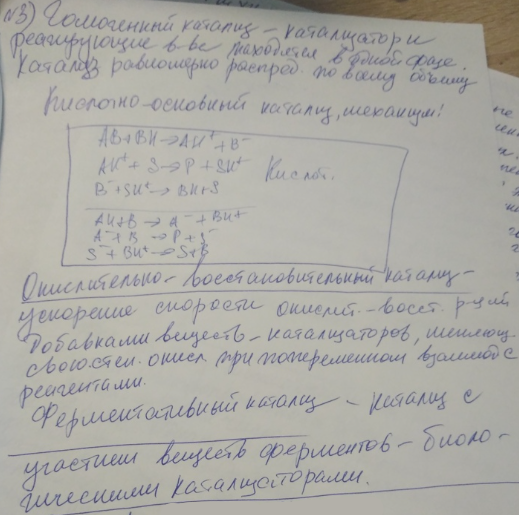 №3) Гомогенный катализ – катализатор и
реагирующие в-ва находятся в одной фазе.
Катализ равномерно распред. по всему объёму
Кислотно-основный катализ, механизм:
AB + BH → AH⁺ + B⁻
AH⁺ + S → P + SH⁺ Кислот.
B⁻ + SH⁺ → BH + S
AH + B → A⁻ + BH⁺
A⁻ + B → P + S⁻
S⁻ + BH⁺ → S + B
Окислительно-восстановительный катализ –
ускорение скорости окислит.-восст. р-ций
добавками веществ – катализаторов, меняющ.
свою степ. окисл. при попеременном взаимод с
реагентами.
Ферментативный катализ – катализ с
участием веществ ферментов – биоло-
гическими катализаторами.